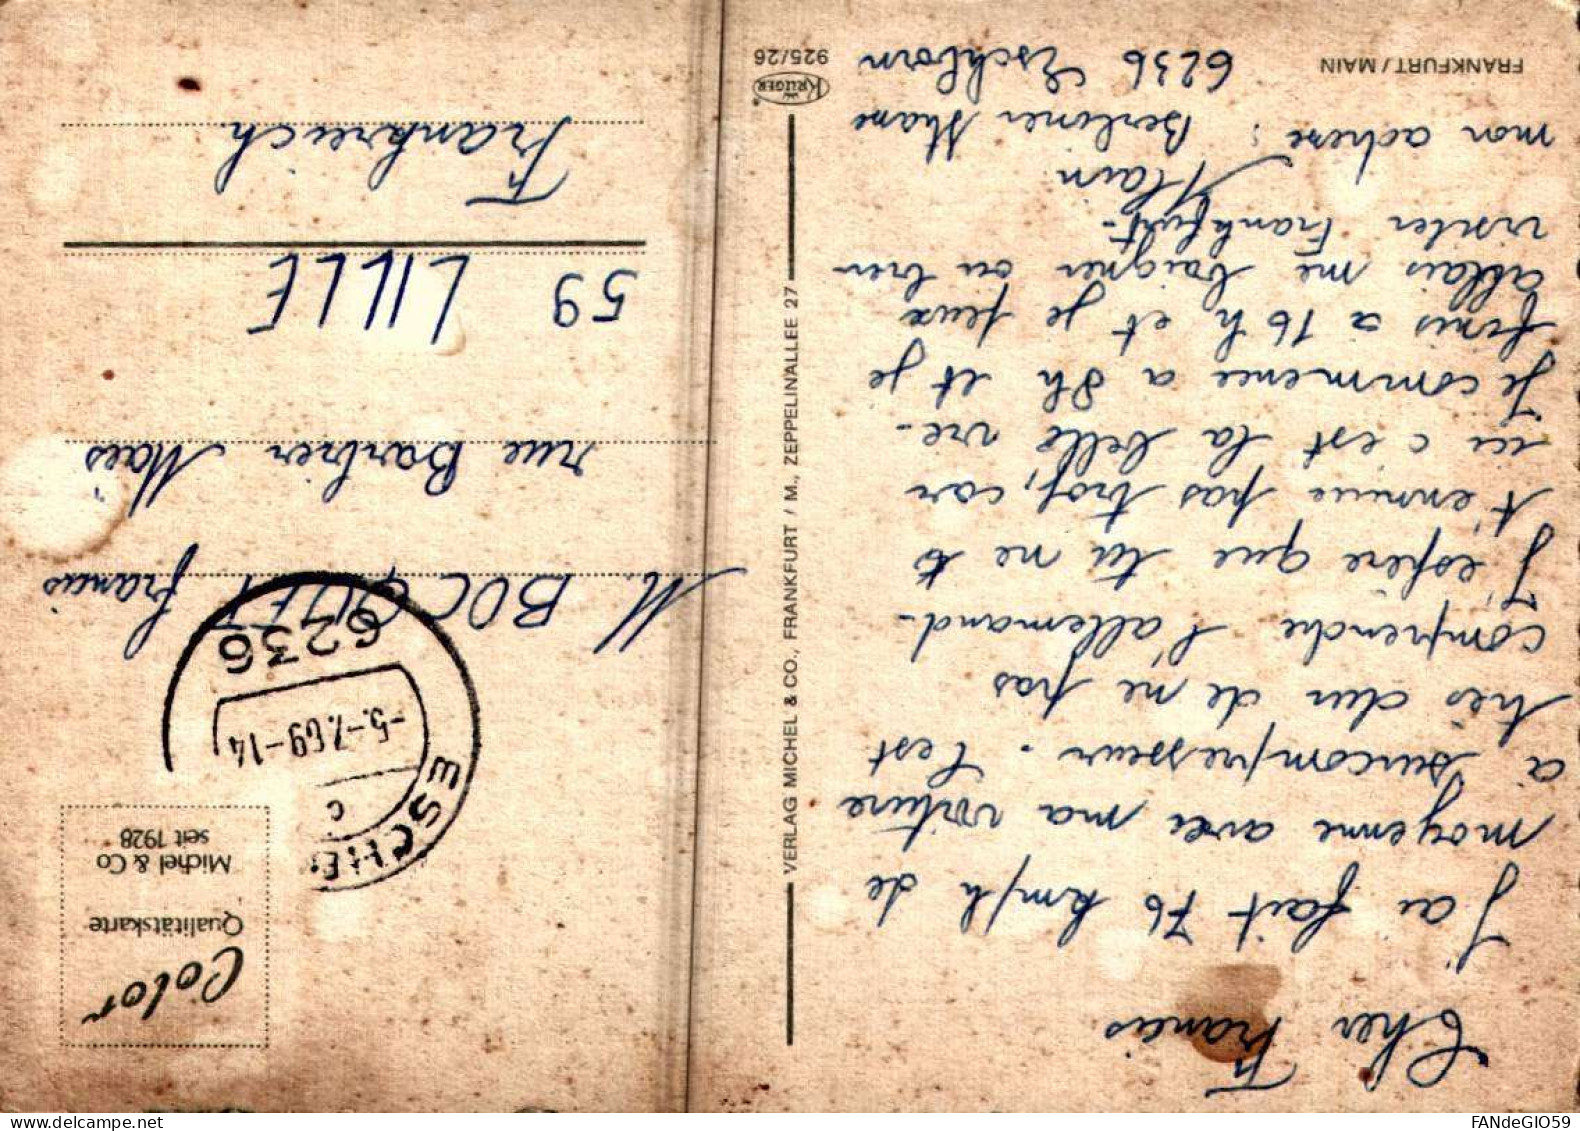 Cher Francis
J'ai fait 76 km/h de
moyenne avec ma voiture
à surcompresseur. C'est
très dur de ne pas
comprendre l'allemand.
J'espère que tu ne
t'ennuie pas trop, car
ici c est la belle vie.
Je commence a 8h et je
finis a 16 h et je peux
allais me baigner ou bien
visiter Frankfurt.
Alain
mon adresse : Berliner Strasse
6236 Eschborn
FRANKFURT / MAIN
VERLAG MICHEL & CO., FRANKFURT / M., ZEPPELINALLEE 27
KRÜGER
925/26
Color
Qualitätskarte
Michel & Co
seit 1928
ESCHB
c
-5.-7.69-14
6236
M. BOCQUET Francis
rue Barbier Maës
59 LILLE
Frankreich
www.delcampe.net
FANdeGIO59